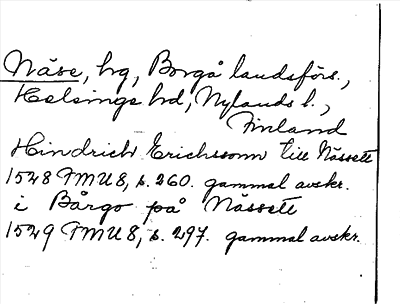 Näse, hg, Borgå landsförs.,
Helsinge hd, Nylands l.,
Finland
Hindrich Erichssonn till Nässett
1528 FMU 8, s. 260. gammal avskr.
i Bårgo på Nässett
1529 FMU 8, s. 297. gammal avskr.